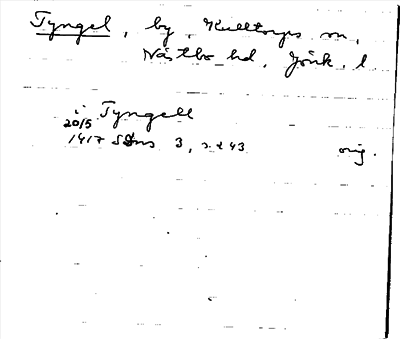 Tyngel, by, Kulltorps sn,
Västbo hd, Jönk. l.
i Tyngell
20/5
1417 SDns 3, s. 243 orig.